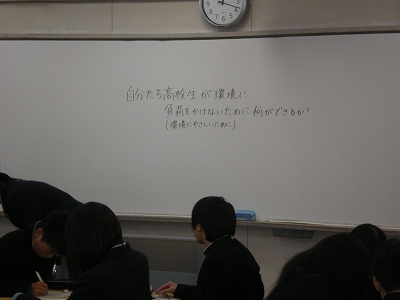 自分たち高校生が環境に
負荷をかけないために何ができるか?
(環境にやさしいために)